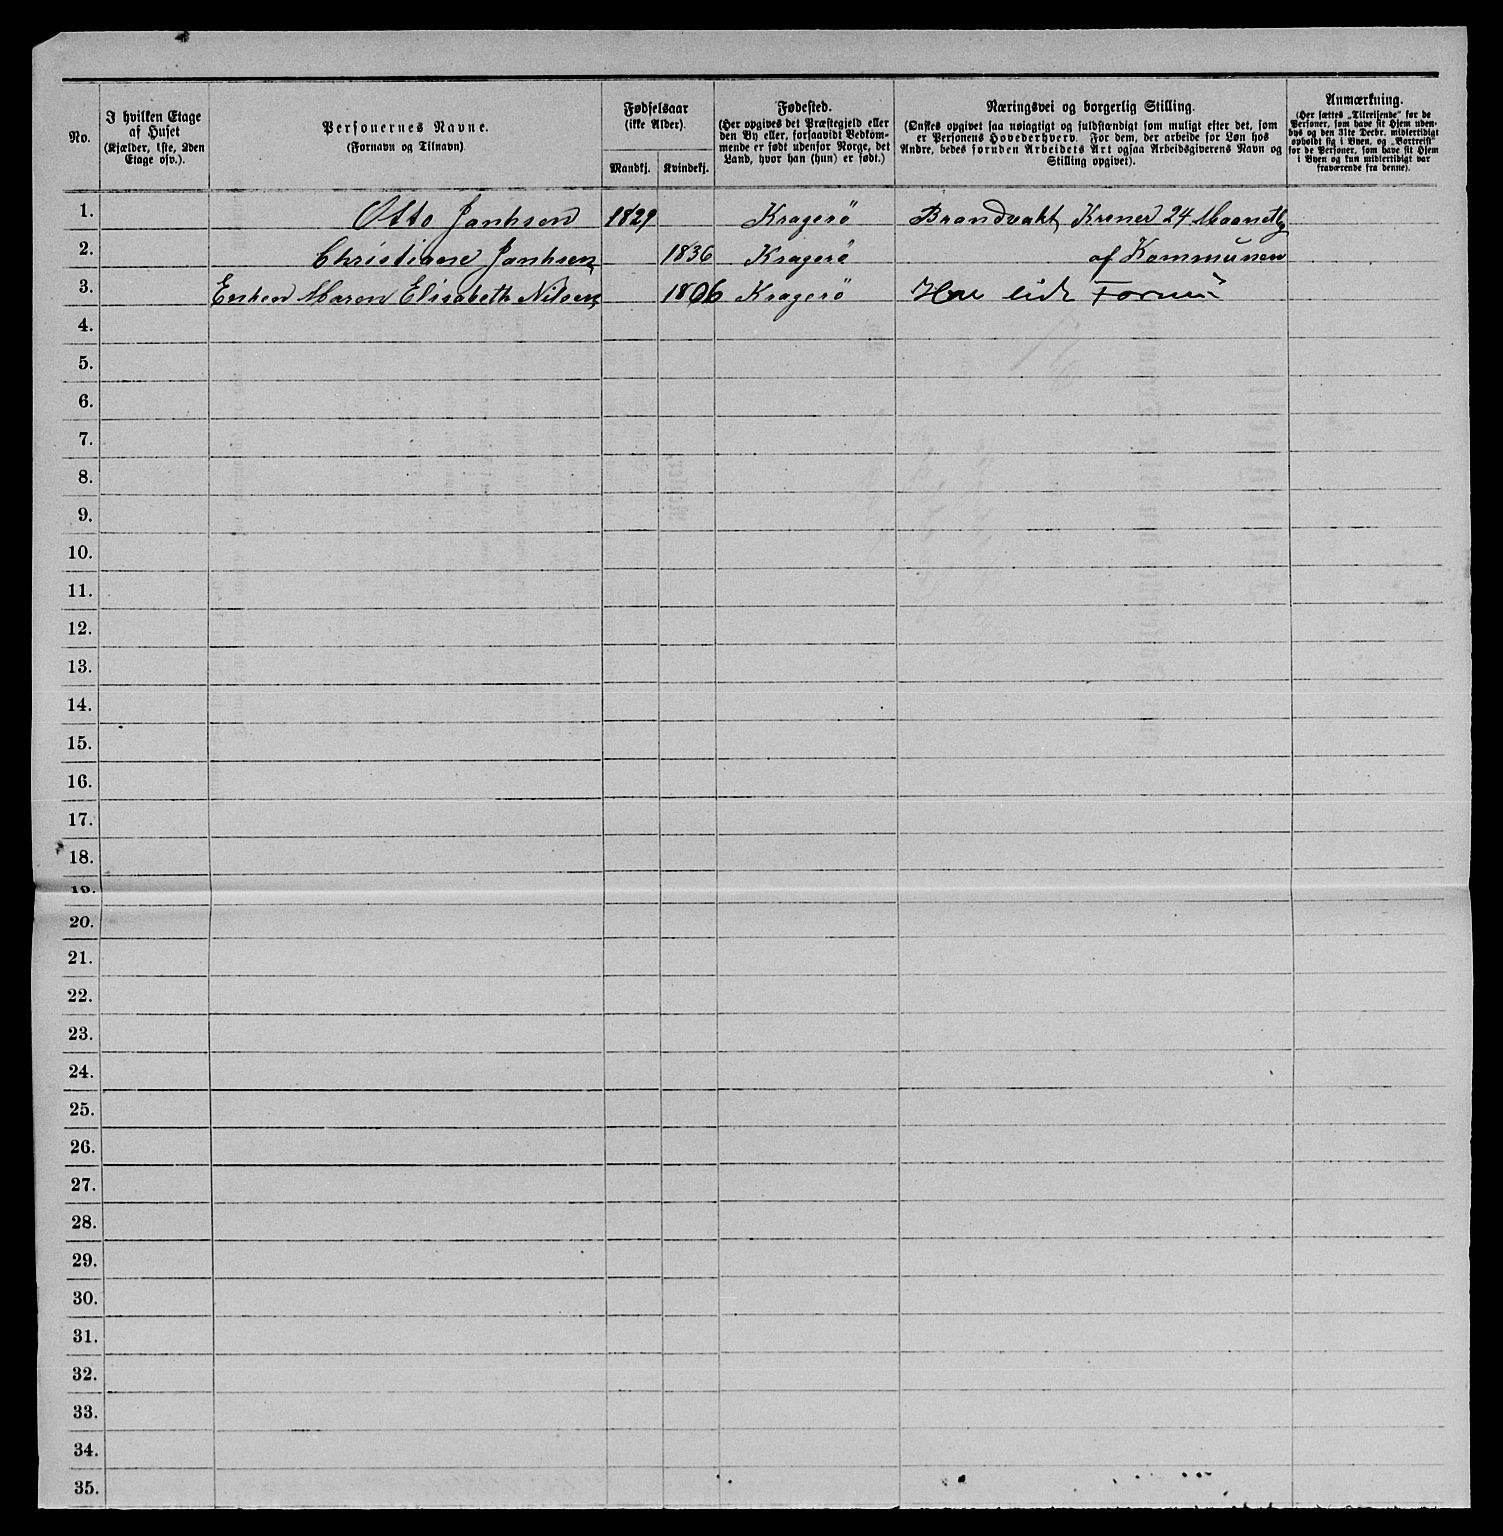 No.
I hvilken Etage
af Huset
(Kjælder, 1ste, 2den
Etage osv.).
Personernes Navne.
(Fornavn og Tilnavn)
Fødselsaar
(ikke Alder).
Mandkj. Kvindekj.
Fødested.
(Her opgives det Præstegjeld eller
den By eller, forsaavidt Vedkom-
mende er født udenfor Norge, det
Land, hvor han (hun) er født.)
Næringsvei og borgerlig Stilling.
(Ønskes opgivet saa nøiagtigt og fuldstændigt som muligt efter det, som
er Personens Hovederhverv. For dem, der arbeide for Løn hos
Andre, bedes foruden Arbeidets Art ogsaa Arbeidsgiverens Navn og
Stilling opgivet).
Anmærkning.
(Her sættes „Tilreisende“ for de
Personer, som have sit Hjem uden-
bys og den 31te Decbr. midlertidigt
opholdt sig i Byen, og „Bortreist“
for de Personer, som have sit Hjem
i Byen og kun midlertidigt var
fraværende fra denne).
1. Otto Janhsen 1829 Kragerö Brandvakt, Kroner 24 Maanetlg
2. Christiane Janhsen 1836 Kragerö af Kommunen
3. Enken Maren Elisabeth Nilsen 1806 Kragerö Har lidt
4.
5.
6.
7.
8.
9.
10.
11.
12.
13.
14.
15.
16.
17.
18.
19.
20.
21.
22.
23.
24.
25.
26.
27.
28.
29.
30.
31.
32.
33.
34.
35.